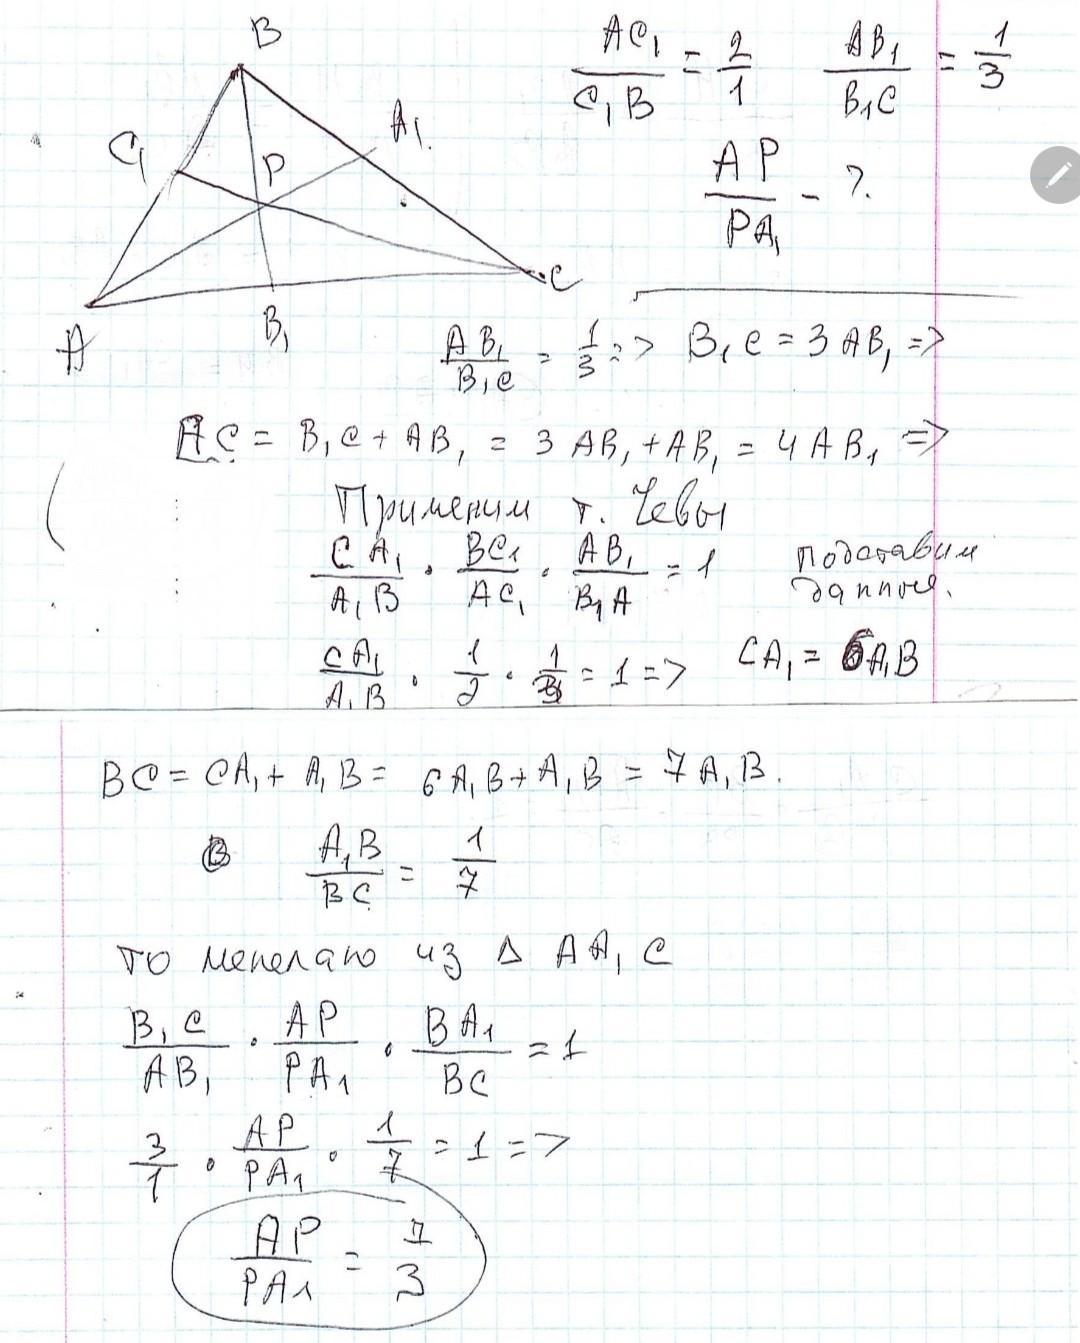 B
AC₁/C₁B = 2/1 AB₁/B₁C = 1/3
C₁ P A₁.
AP/PA₁ - ?
A B₁ C
AB₁/B₁C = 1/3 => B₁C = 3AB₁ =>
AC = B₁C + AB₁ = 3AB₁ + AB₁ = 4AB₁ =>
Применим т. Чевы
CA₁/A₁B · BC₁/AC₁ · AB₁/B₁A = 1 подставим данные.
CA₁/A₁B · 1/2 · 1/3 = 1 => CA₁ = 6A₁B
BC = CA₁ + A₁B = 6A₁B + A₁B = 7A₁B.
A₁B/BC = 1/7
то менелаю из Δ AA₁C
B₁C/AB₁ · AP/PA₁ · BA₁/BC = 1
3/1 · AP/PA₁ · 1/7 = 1 =>
AP/PA₁ = 7/3